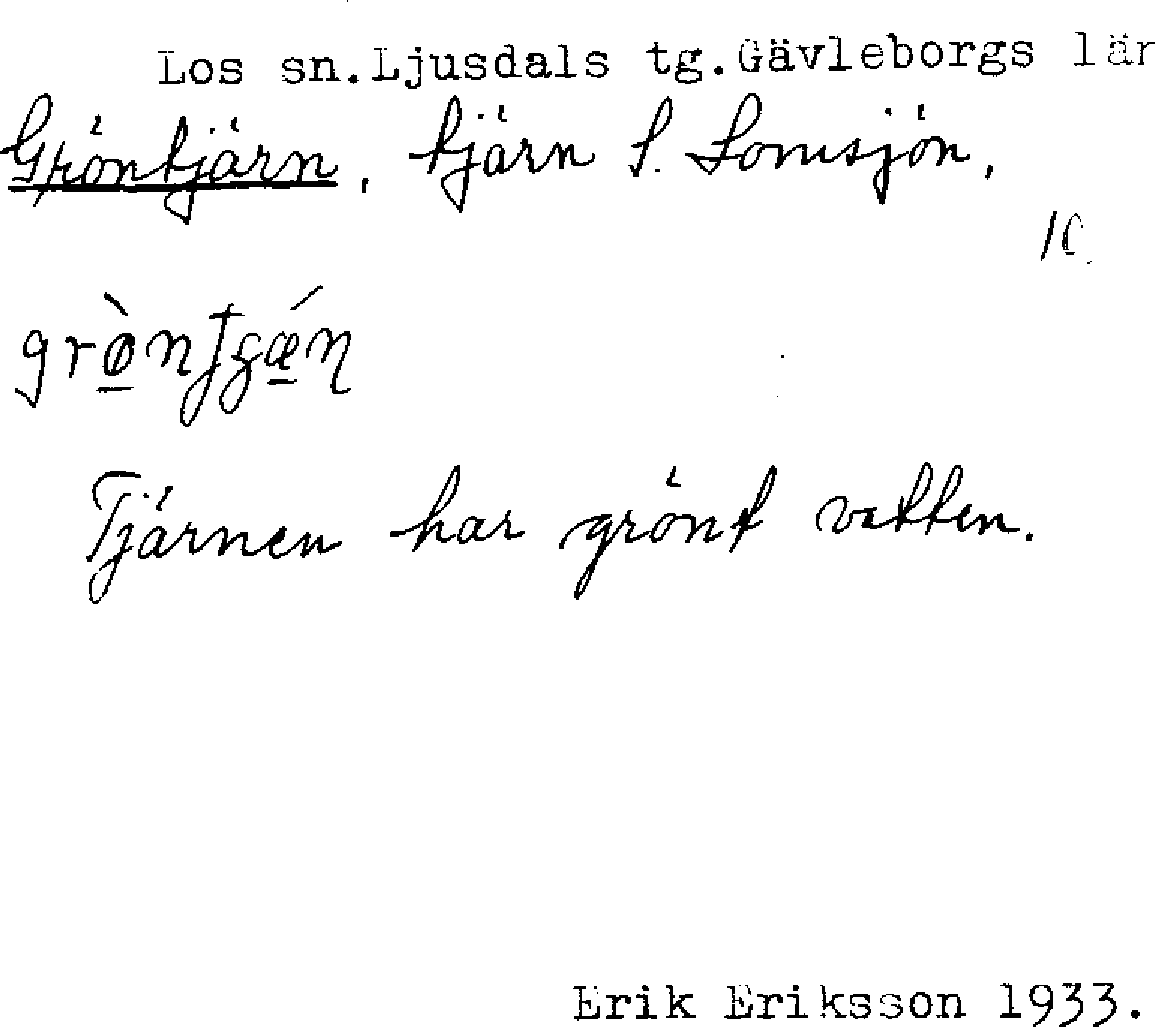 Los sn.Ljusdals tg.Gävleborgs län
Gröntjärn, tjärn S. Lomsjön,
Tjärnen har grönt vatten.
Erik Eriksson 1933.